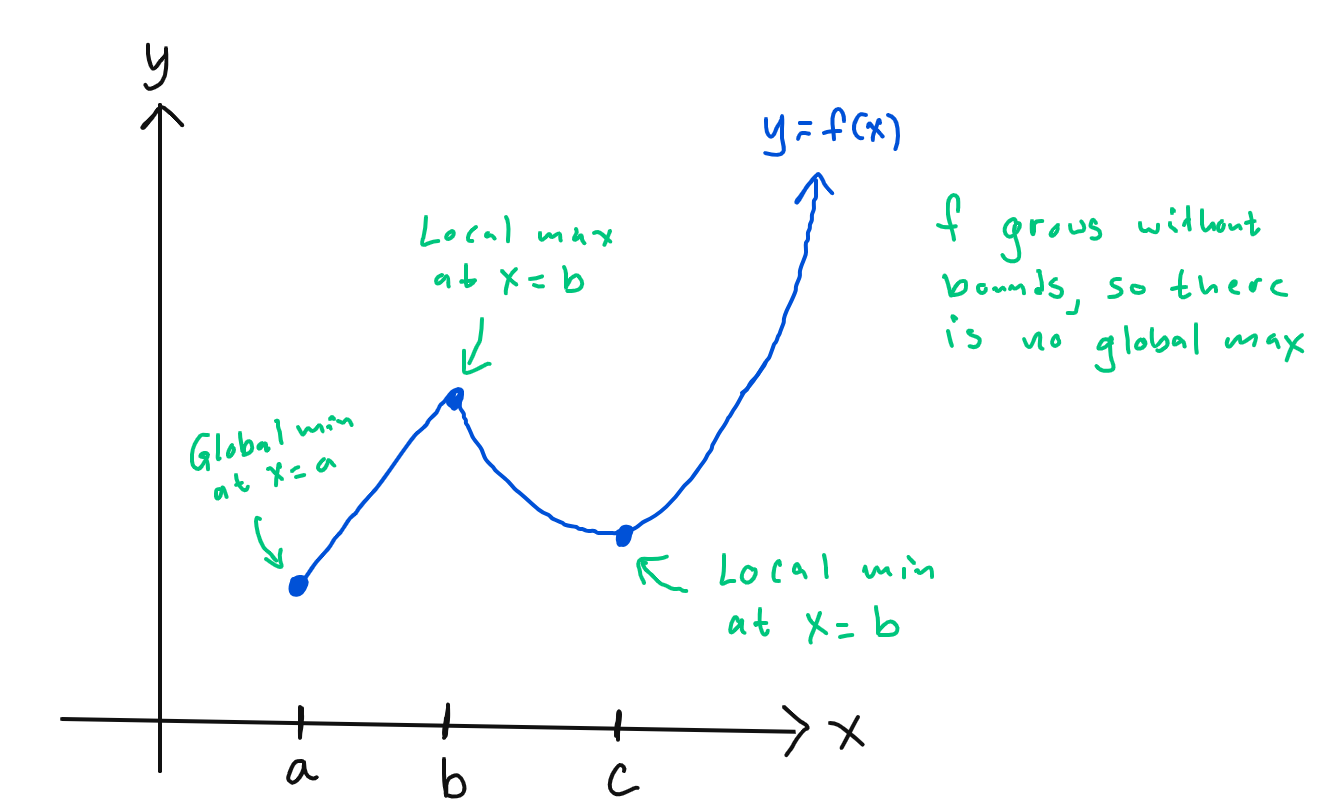 y
y=f(x)
Local max
at x=b
f grows without
bounds, so there
is no global max
Global min
at x=a
Local min
at x=b
x
a
b
c